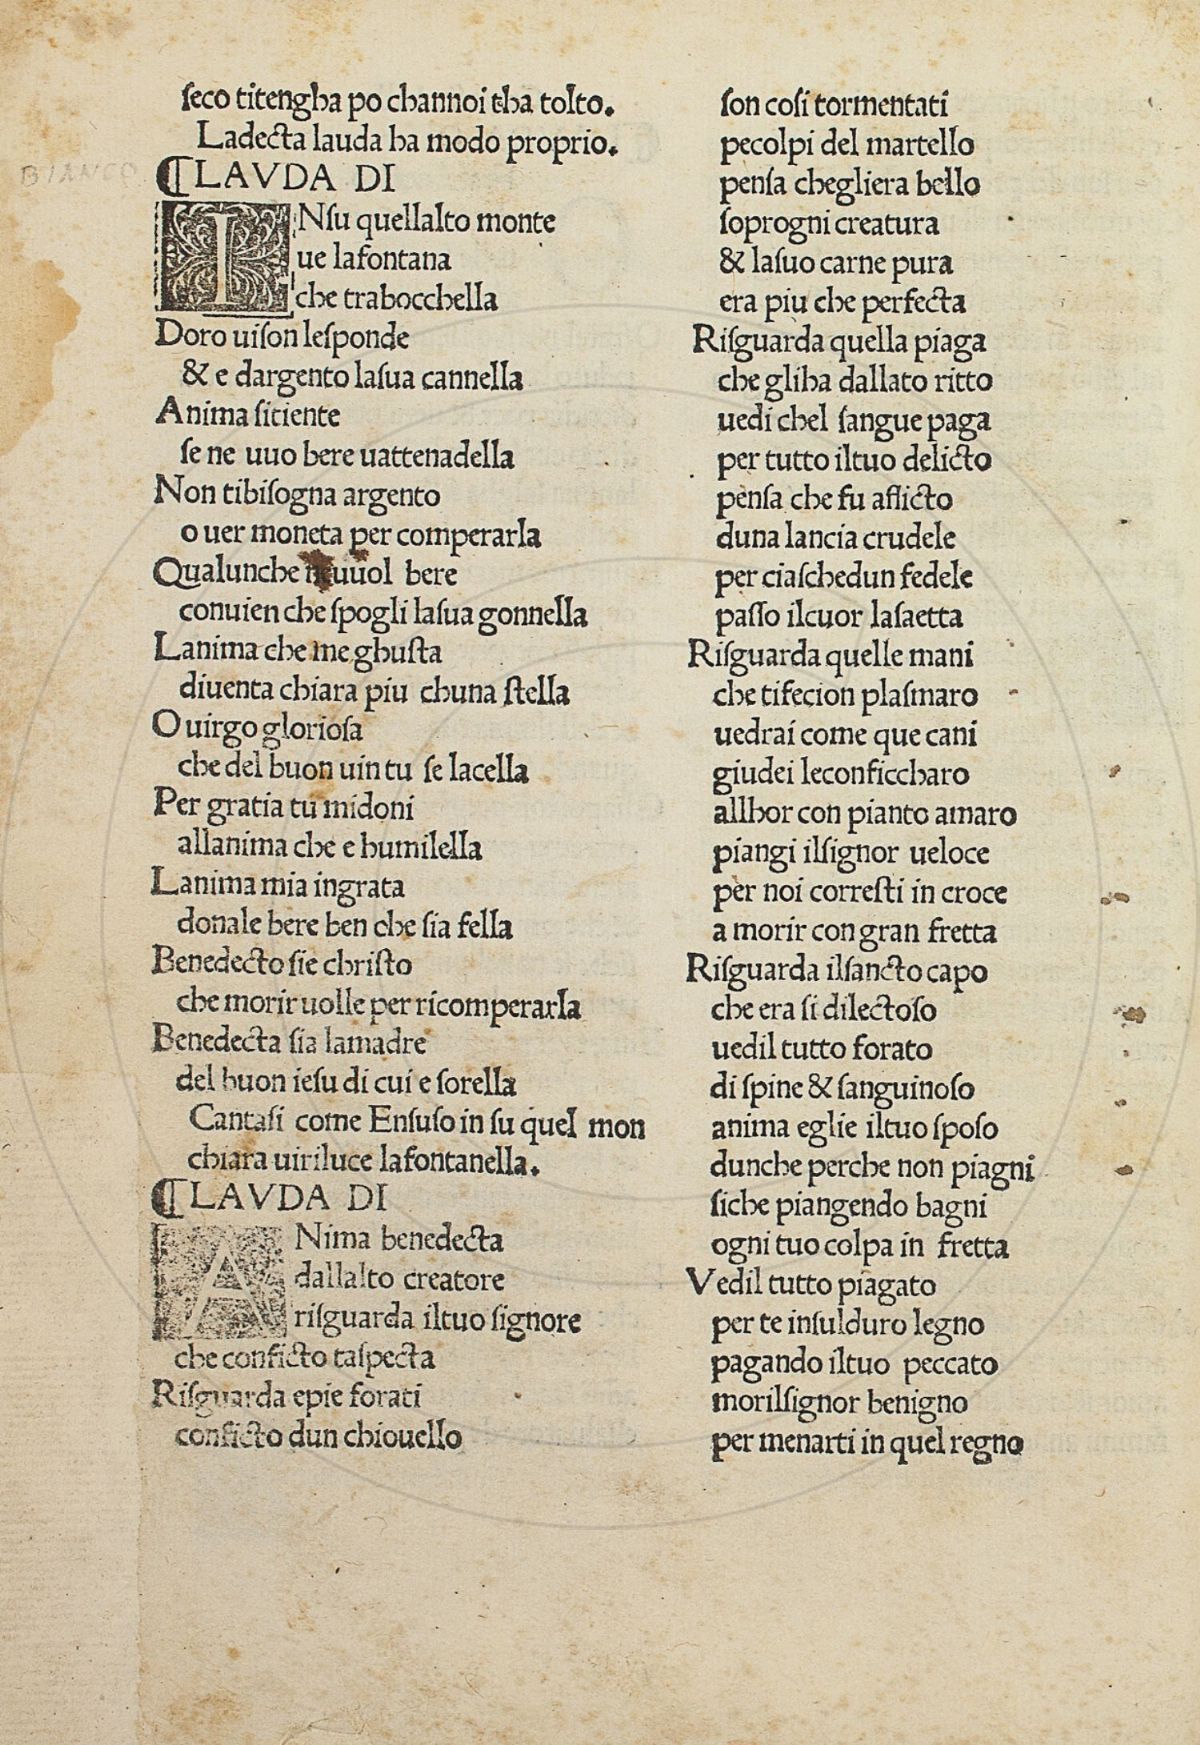 seco titengha po channoi tha tolto.
Ladecta lauda ha modo proprio.
BIANCO
¶LAVDA DI
INsu quellalto monte
ue lafontana
che trabocchella
Doro uison lesponde
& e dargento lasua cannella
Anima sitiente
se ne uuo bere uattenadella
Non tibisogna argento
o uer moneta per comperarla
Qualunche uuol bere
conuien che spogli lasua gonnella
Lanima che me ghusta
diuenta chiara piu chuna stella
O uirgo gloriosa
che del buon uin tu se lacella
Per gratia tu midoni
allanima che e humilella
Lanima mia ingrata
donale bere ben che sia fella
Benedecto sie christo
che morir uolle per ricomperarla
Benedecta sia lamadre
del buon iesu di cui e sorella
Cantasi come Ensuso in su quel mon
chiara uiriluce lafontanella.
¶LAVDA DI
ANima benedecta
dallalto creatore
risguarda iltuo signore
che conficto taspecta
Risguarda epie forati
conficto dun chiouello
son cosi tormentati
pecolpi del martello
pensa chegliera bello
soprogni creatura
& lasuo carne pura
era piu che perfecta
Risguarda quella piaga
che gliha dallato ritto
uedi chel sangue paga
per tutto iltuo delicto
pensa che fu aflicto
duna lancia crudele
per ciaschedun fedele
passo ilcuor lasaetta
Risguarda quelle mani
che tifecion plasmaro
uedrai come que cani
giudei leconficcharo
allhor con pianto amaro
piangi ilsignor ueloce
per noi corresti in croce
a morir con gran fretta
Risguarda ilsancto capo
che era si dilectoso
uedil tutto forato
di spine & sanguinoso
anima eglie iltuo sposo
dunche perche non piagni
siche piangendo bagni
ogni tuo colpa in fretta
Vedil tutto piagato
per te insulduro legno
pagando iltuo peccato
morilsignor benigno
per menarti in quel regno